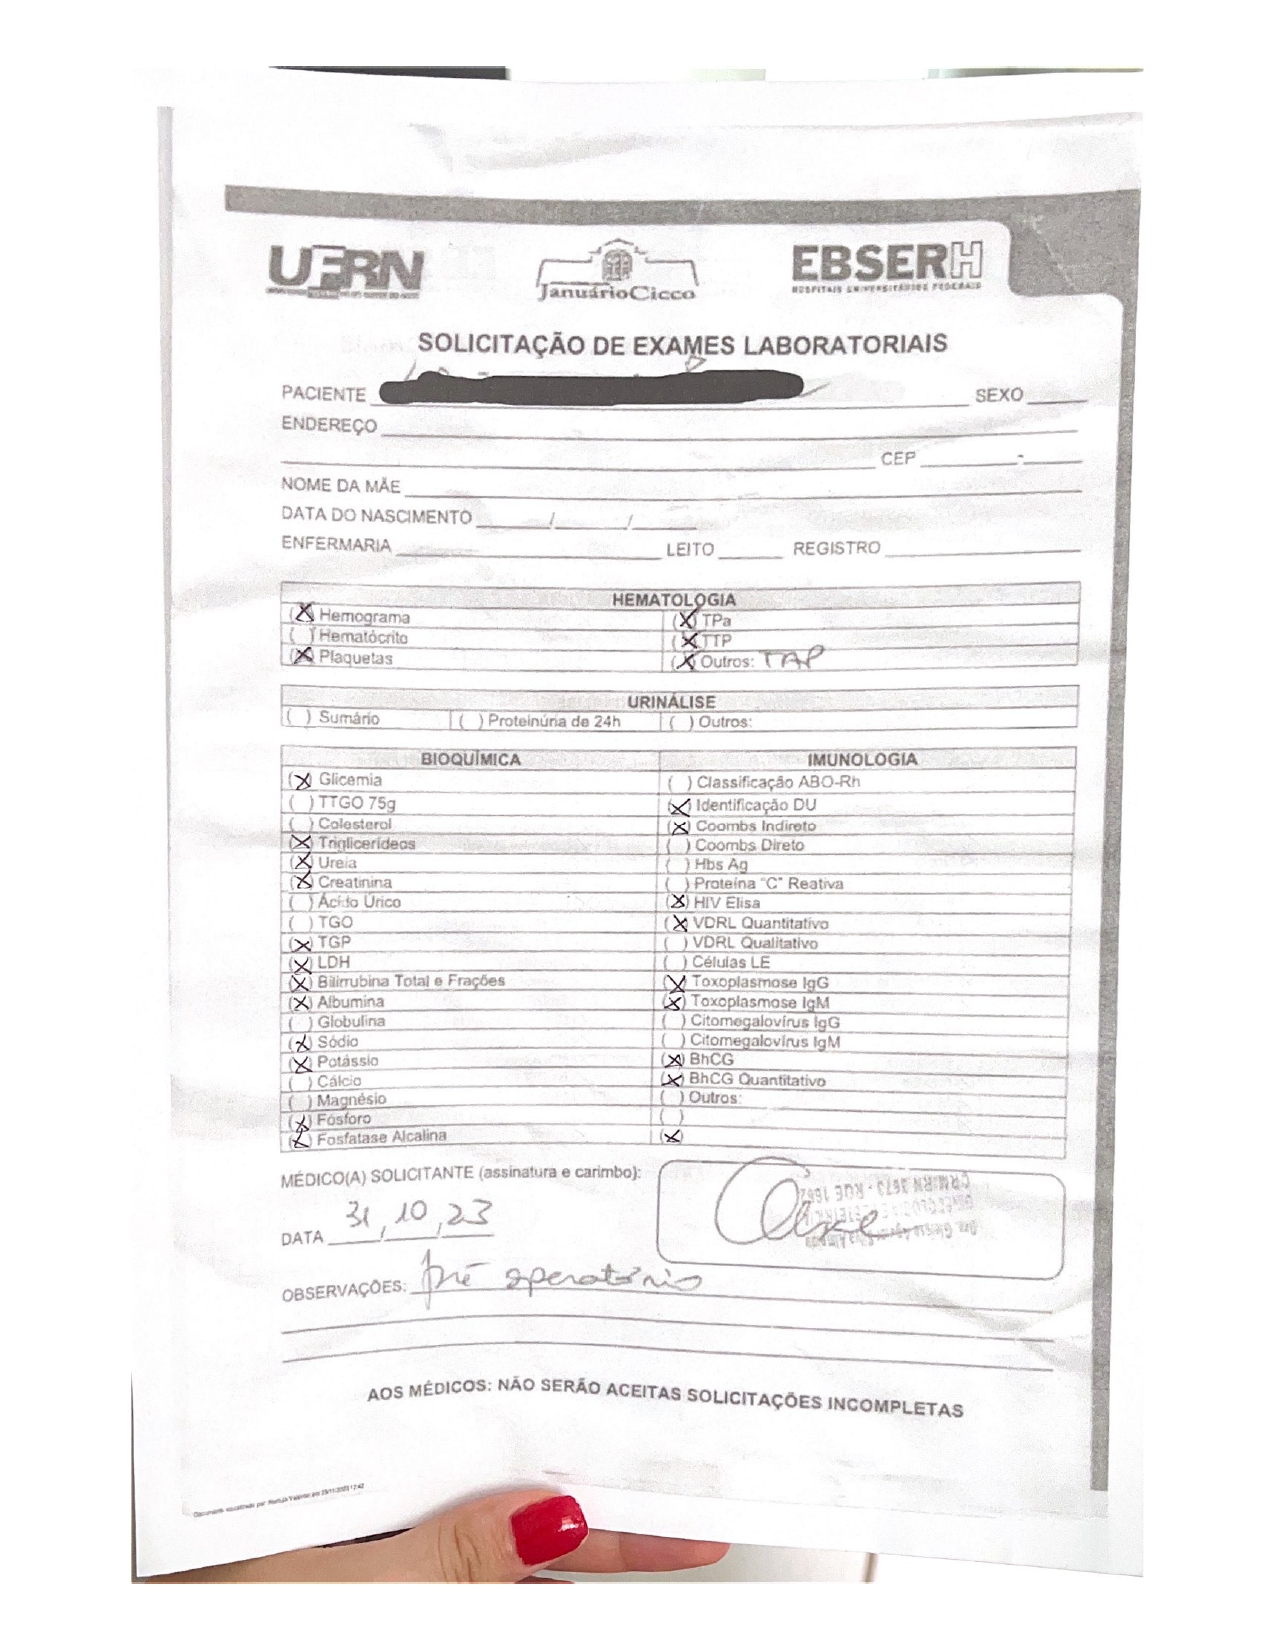 UFRN
JanuárioCicco
EBSERH
HOSPITAIS UNIVERSITÁRIOS FEDERAIS
SOLICITAÇÃO DE EXAMES LABORATORIAIS
PACIENTE SEXO
ENDEREÇO
CEP -
NOME DA MÃE
DATA DO NASCIMENTO / /
ENFERMARIA LEITO REGISTRO
HEMATOLOGIA
(X) Hemograma (X) TPa
( ) Hematócrito (X) TTP
(X) Plaquetas (X) Outros: TAP
URINÁLISE
( ) Sumário ( ) Proteinúria de 24h ( ) Outros:
BIOQUÍMICA IMUNOLOGIA
(X) Glicemia ( ) Classificação ABO-Rh
( ) TTGO 75g (X) Identificação DU
( ) Colesterol (X) Coombs Indireto
(X) Triglicerídeos ( ) Coombs Direto
(X) Ureia ( ) Hbs Ag
(X) Creatinina ( ) Proteína "C" Reativa
( ) Ácido Úrico (X) HIV Elisa
( ) TGO (X) VDRL Quantitativo
(X) TGP ( ) VDRL Qualitativo
(X) LDH ( ) Células LE
(X) Bilirrubina Total e Frações (X) Toxoplasmose IgG
(X) Albumina (X) Toxoplasmose IgM
( ) Globulina ( ) Citomegalovírus IgG
(X) Sódio ( ) Citomegalovírus IgM
(X) Potássio (X) BhCG
( ) Cálcio (X) BhCG Quantitativo
( ) Magnésio ( ) Outros:
(X) Fósforo ( )
(X) Fosfatase Alcalina (X)
MÉDICO(A) SOLICITANTE (assinatura e carimbo):
CRM/RN 3673 - RQE
DATA 31/10/23
OBSERVAÇÕES: Pré operatório
AOS MÉDICOS: NÃO SERÃO ACEITAS SOLICITAÇÕES INCOMPLETAS